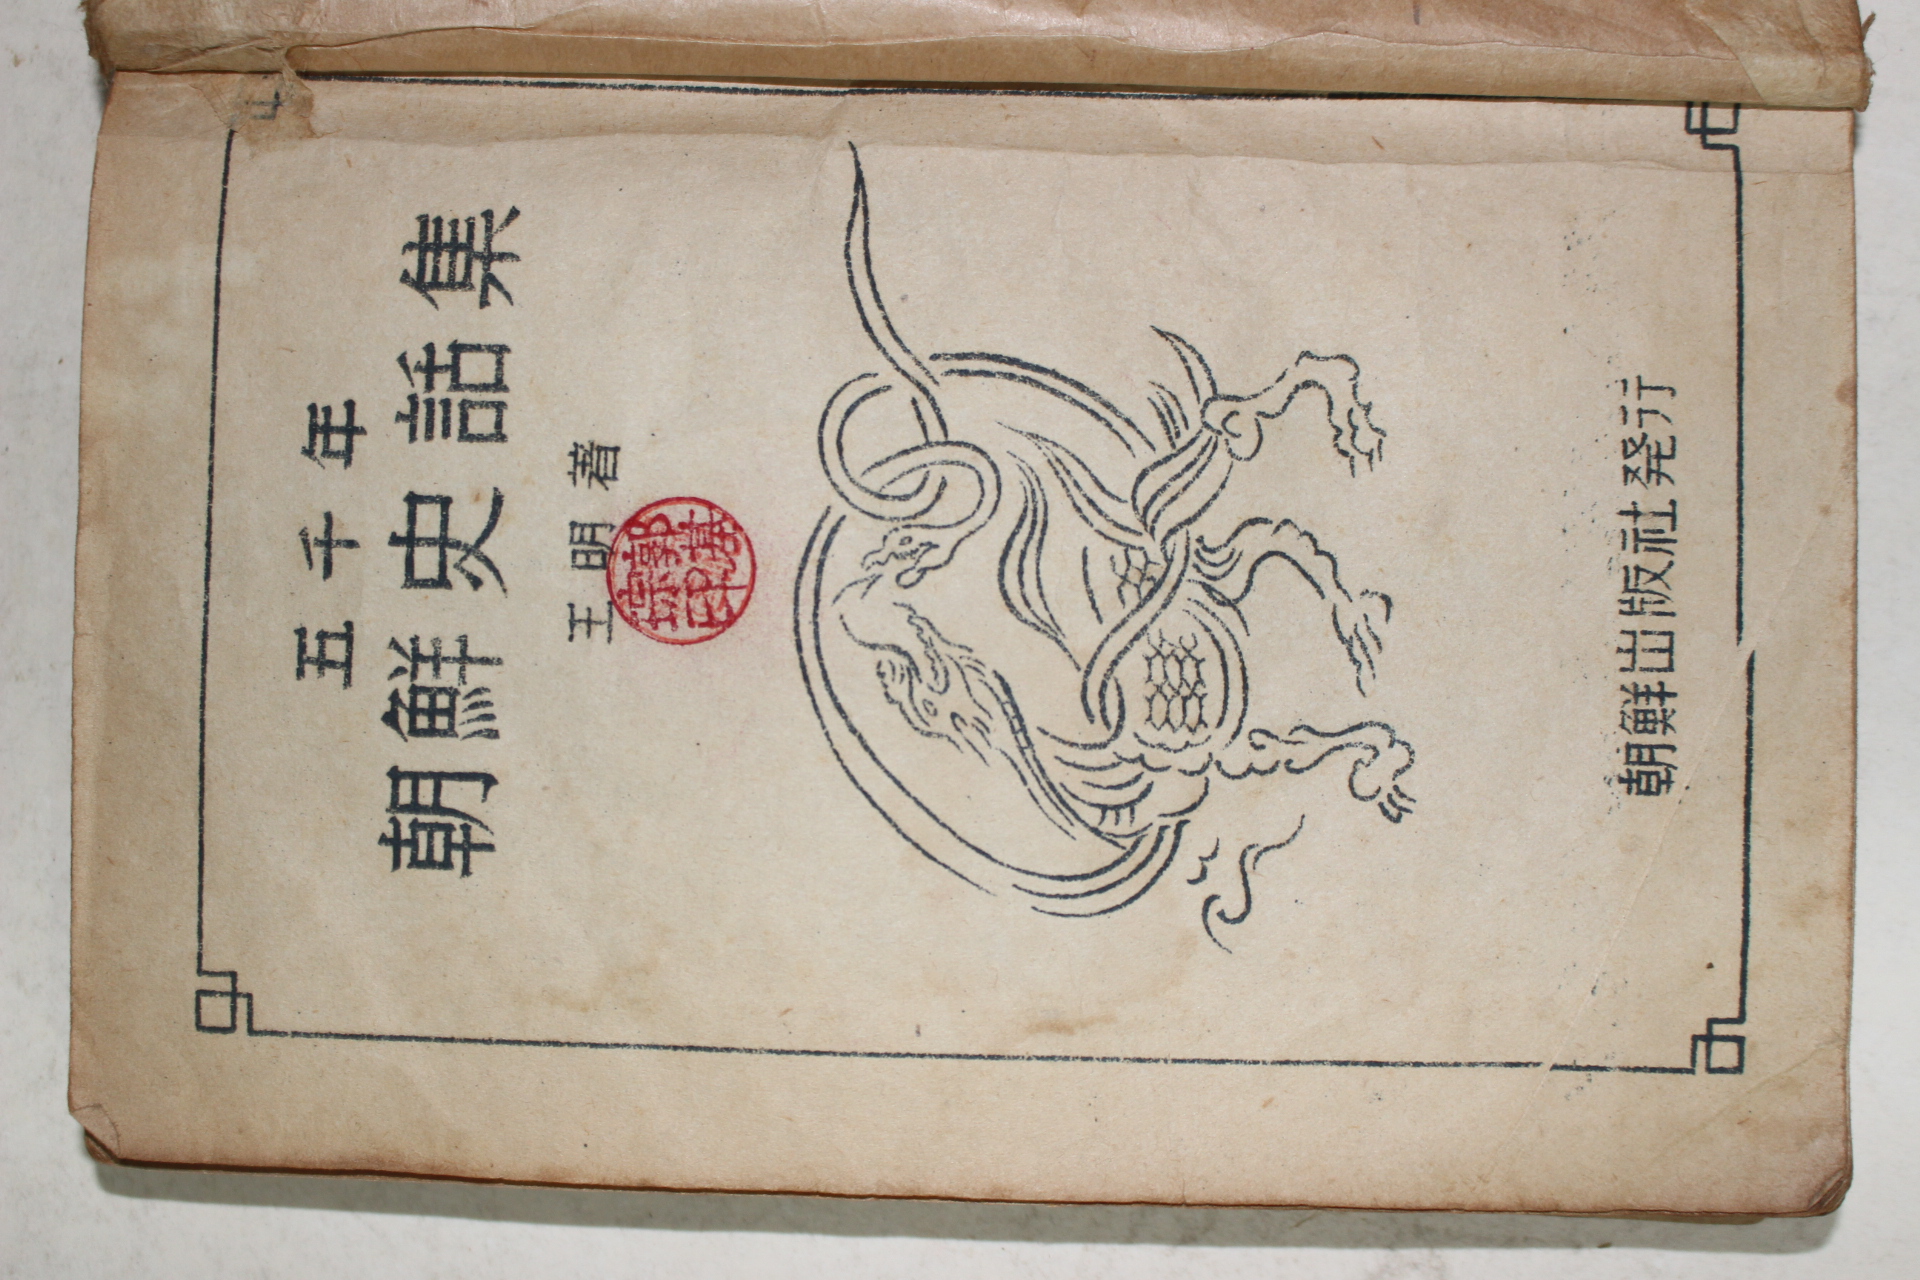 五千年
朝鮮史話集
王明著
朝鮮出版社発行